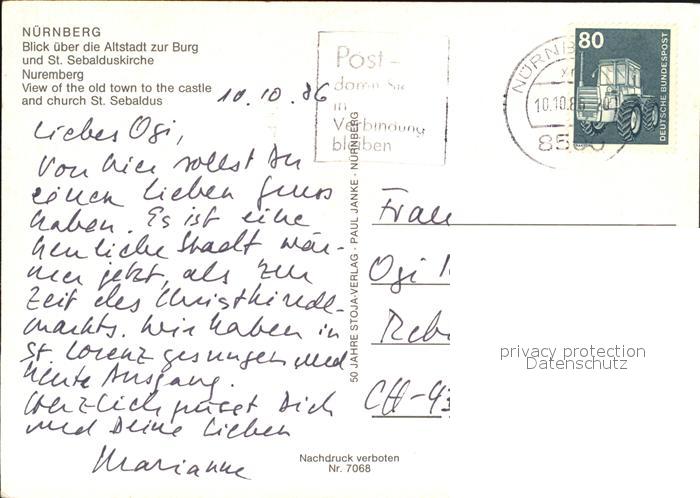 NÜRNBERG
Blick über die Altstadt zur Burg
und St. Sebalduskirche
Nuremberg
View of the old town to the castle
and church St. Sebaldus
10.10.86
Liebes Ogi,
von hier sollst Du
einen lieben Gruss
haben. Es ist eine
herrliche Stadt wär-
mer jetzt, als zur
Zeit des Christkindl-
markts. Wir haben in
St. Lorenz gesungen und
heute Ausgang.
Herzlich grüsst Dich
und Deine Lieben
Marianne
50 JAHRE STOJA-VERLAG · PAUL JANKE · NÜRNBERG
Nachdruck verboten
Nr. 7068
Post -
damit Sie
in
Verbindung
bleiben
NÜRNB
10.10.86
8500
80
DEUTSCHE BUNDESPOST
Frau
Ogi
Reb
CH-43
privacy protection
Datenschutz